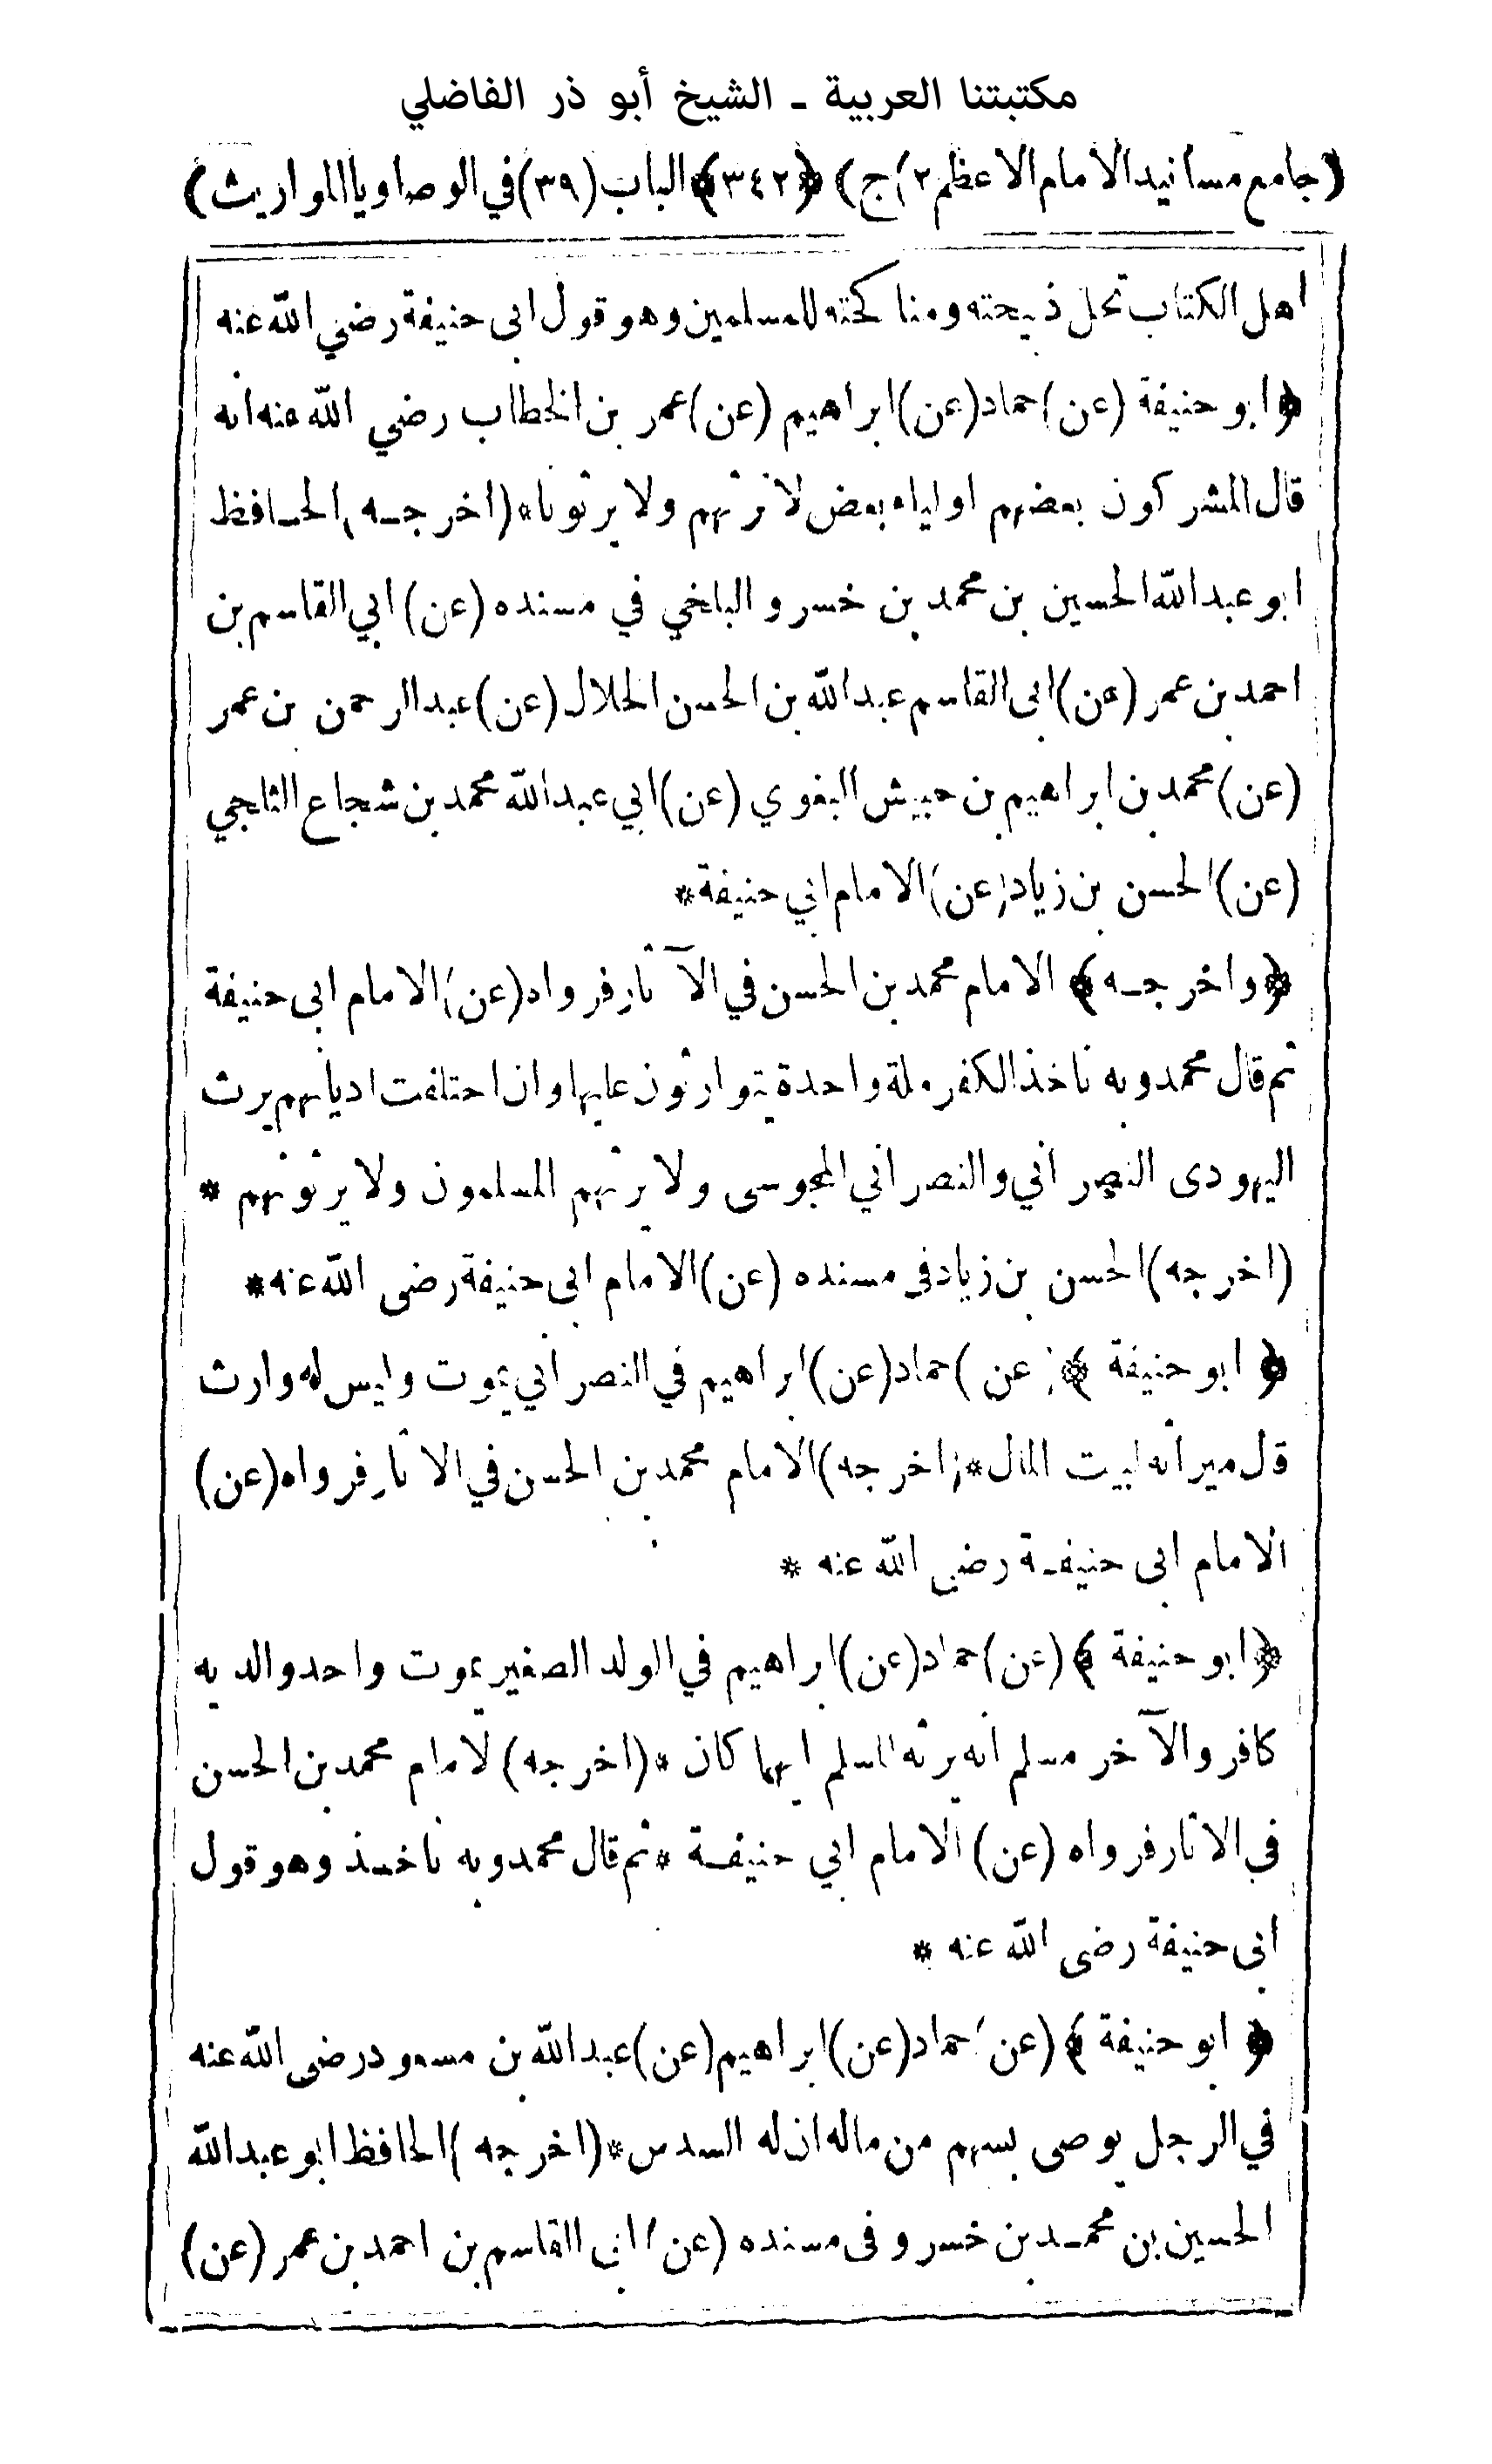 مكتبتنا العربية ـ الشيخ أبو ذر الفاضلي
(جامع مسانيد الامام الاعظم ٢/ج) ﴿٣٤٢﴾ الباب (٣٩) في الوصاويا المواريث)
اهل الكتاب تحل ذبيحته ومناكحته للمسلمين وهو قول ابى حنيفة رضي الله عنه
﴿ابو حنيفة (عن) حماد (عن) ابراهيم (عن) عمر بن الخطاب رضي الله عنه انه
قال المشركون بعضهم اولياء بعض لا نرثهم ولا يرثونا* (اخرجه) الحافظ
ابو عبد الله الحسين بن محمد بن خسرو البلخي في مسنده (عن) ابي القاسم بن
احمد بن عمر (عن) ابى القاسم عبد الله بن الحسن الخلال (عن) عبد الرحمن بن عمر
(عن) محمد بن ابراهيم بن حبيش البغوي (عن) ابي عبد الله محمد بن شجاع الثلجي
(عن) الحسن بن زياد (عن) الامام ابي حنيفة*
﴿واخرجه﴾ الامام محمد بن الحسن في الآثار فرواه (عن) الامام ابى حنيفة
ثم قال محمد وبه ناخذ الكفر ملة واحدة يتوارثون عليها وان احتلفت اديانهم يرث
اليهودى النصراني والنصراني المجوسى ولا يرثهم المسلمون ولا يرثونهم *
(اخرجه) الحسن بن زياد في مسنده (عن) الامام ابى حنيفة رضى الله عنه*
﴿ ابو حنيفة ﴾ (عن) حماد (عن) ابراهيم في النصراني يموت وليس له وارث
قل ميراثه لبيت المال* (اخرجه) الامام محمد بن الحسن في الاثار فرواه (عن)
الامام ابى حنيفة رضى الله عنه *
﴿ابو حنيفة ﴾ (عن) حماد (عن) ابراهيم في الولد الصغير يموت واحد والديه
كافر والآخر مسلم انه يرثه المسلم ايهما كان * (اخرجه) لامام محمد بن الحسن
في الاثار فرواه (عن) الامام ابي حنيفة * ثم قال محمد وبه ناخذ وهو قول
ابى حنيفة رضى الله عنه *
﴿ ابو حنيفة ﴾ (عن) حماد (عن) ابراهيم (عن) عبد الله بن مسعود رضى الله عنه
في الرجل يوصى بسهم من ماله ان له السدس* (اخرجه) الحافظ ابو عبد الله
الحسين بن محمد بن خسرو فى مسنده (عن) ابى القاسم بن احمد بن عمر (عن)